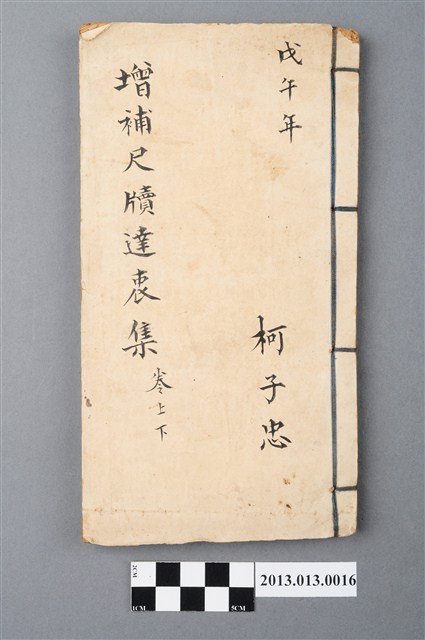 戊午年
柯子忠
增補尺牘達衷集
卷上下
2CM
1CM
5CM
2013.013.0016